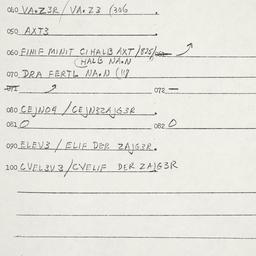 040 VA.Z3R / VA.Z3 (306
050 AXT3
060 FINIF MINIT CIHALB AXT /825/
(HALB NA.N
070 DRA FERTL NA.N (18
071 072 —
080 CEJN04 / CEJN3ZAJG3R
081 O 082 O
090 ELEV3 / ELIF DER ZAJG3R.
100 CVELV3 / CVELIF DER ZAJG3R